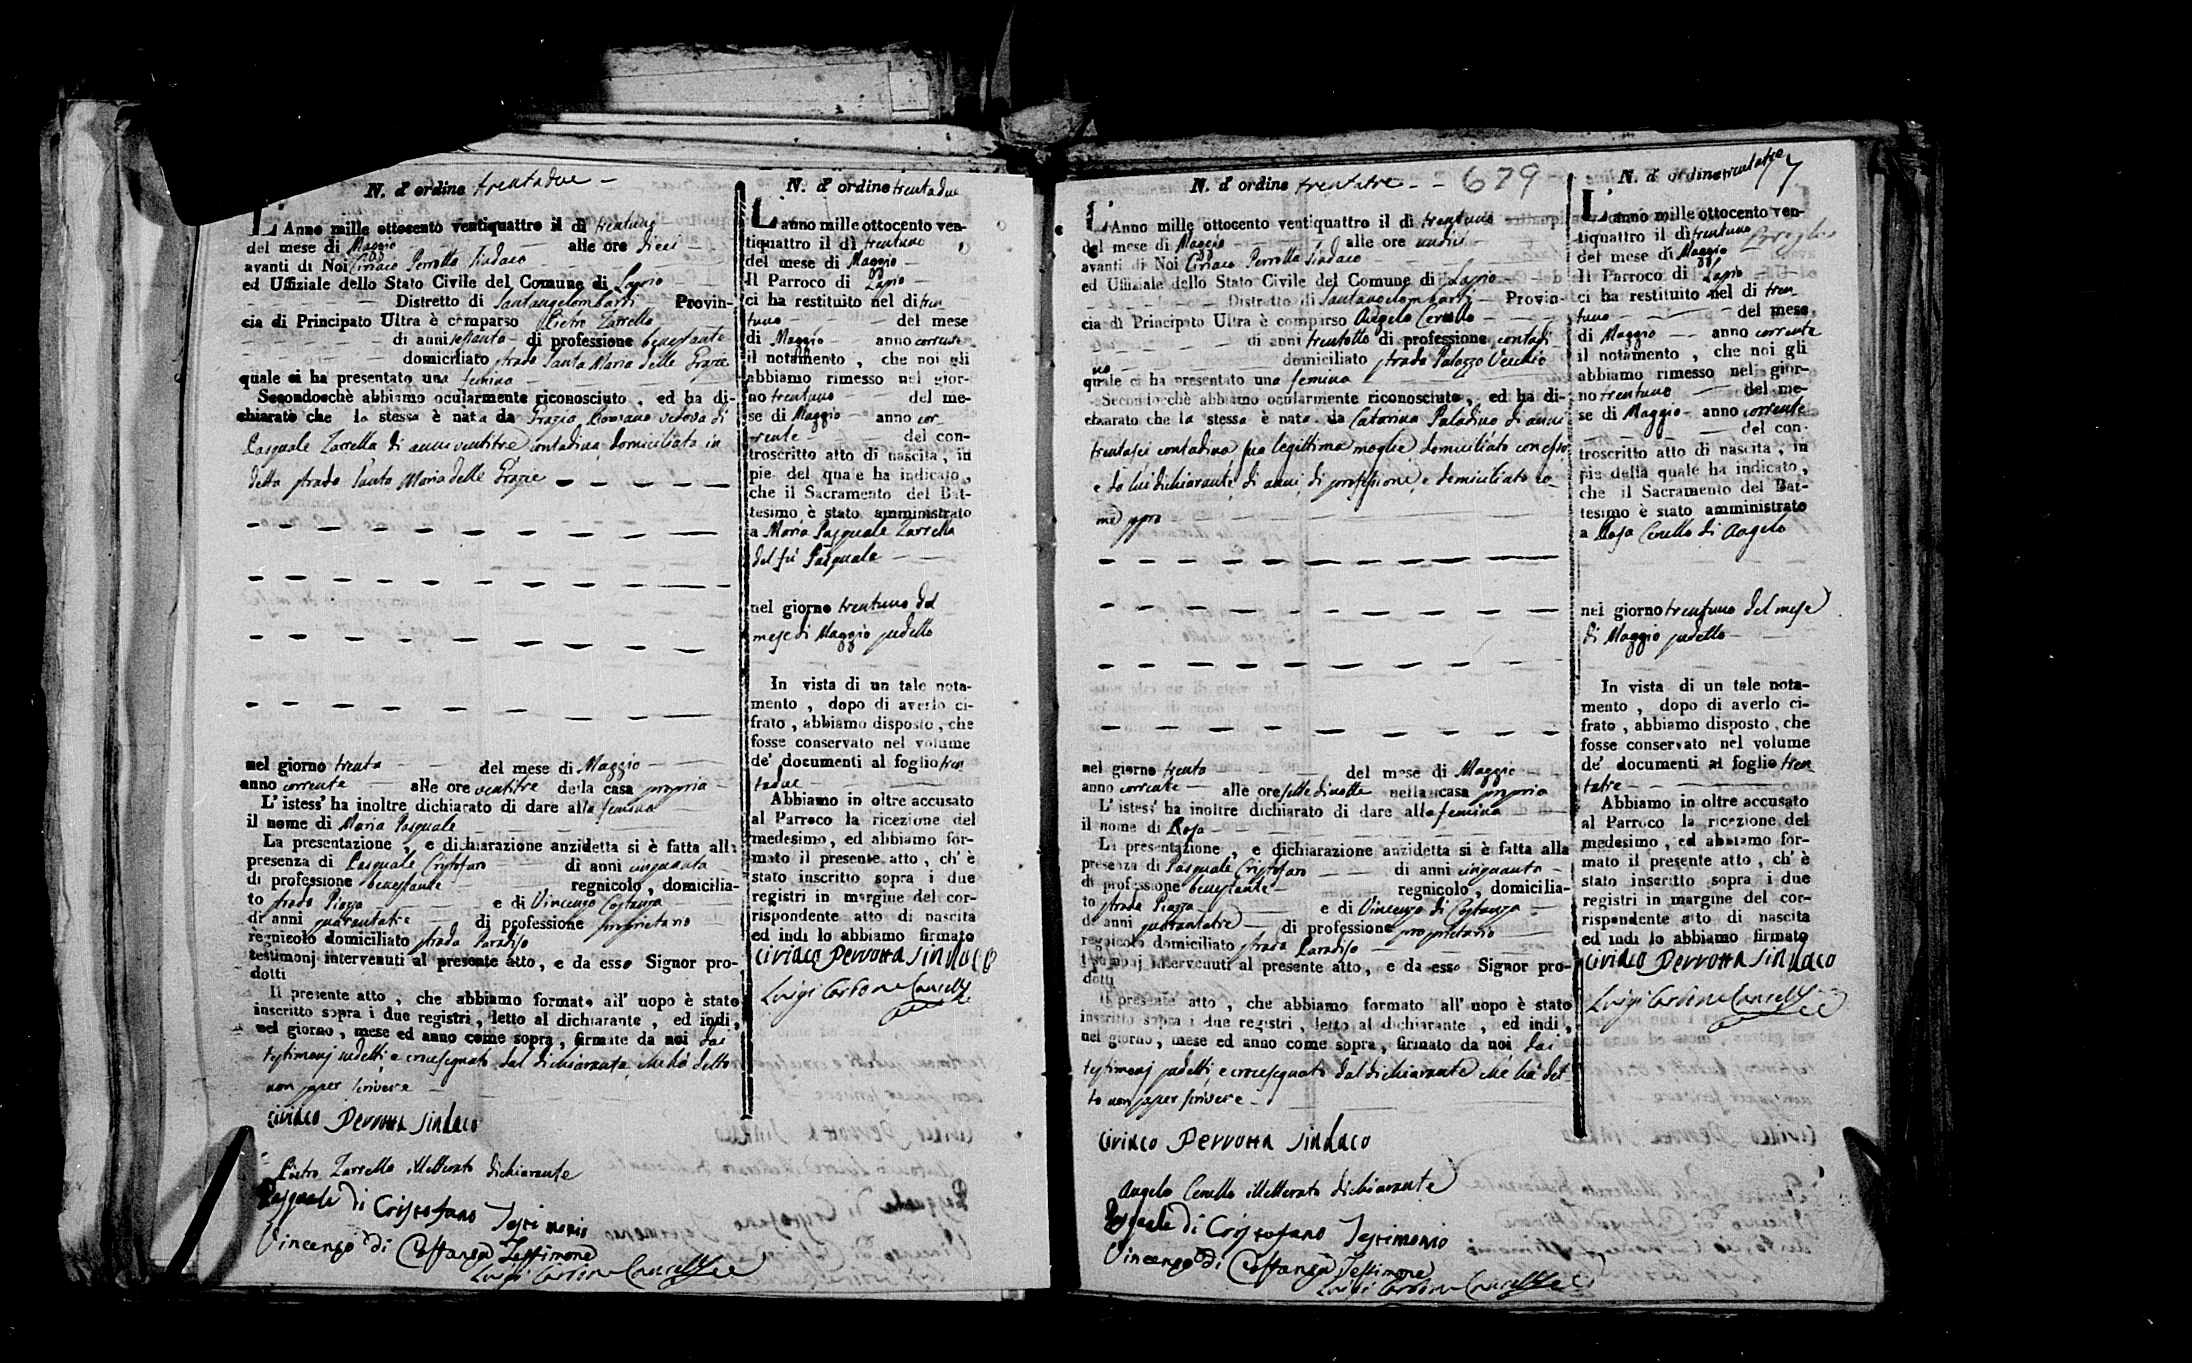 N. d' ordine trentadue
L' Anno mille ottocento ventiquattro il dì trentuno
del mese di Maggio alle ore dieci
avanti di Noi Ciriaco Perrotta Sindaco
ed Uffiziale dello Stato Civile del Comune di Lapio
Distretto di Santangelombardi Provin-
cia di Principato Ultra è comparso Pietro Zarrella
di anni settanta di professione benestante
domiciliato strada Santa Maria delle Grazie
quale ci ha presentato una femina
Secondocchè abbiamo ocularmente riconosciuto, ed ha di-
chiarato che la stessa è nata da Grazia Romano vedova di
Pasquale Zarrella di anni ventitre contadina domiciliata in
detta strada Santa Maria delle Grazie
nel giorno trenta del mese di Maggio
anno corrente alle ore ventitre della casa propria
L' istess' ha inoltre dichiarato di dare alla femina
il nome di Maria Pasquale
La presentazione, e dichiarazione anzidetta si è fatta alla
presenza di Pasquale Cristofan di anni cinquanta
di professione benestante regnicolo, domicilia-
to strada Piazza e di Vincenzo Costanza
di anni quarantatre di professione proprietario
regnicolo domiciliato strada Paradiso
testimonj intervenuti al presente atto, e da esso Signor pro-
dotti
Il presente atto, che abbiamo formato all' uopo è stato
inscritto sopra i due registri, letto al dichiarante, ed indi,
nel giorno, mese ed anno come sopra, firmato da noi dai
testimonj sudetti, e crocesegnato dal dichiarante che ha detto
non saper scrivere
Ciriaco Perrotta Sindaco
Pietro Zarrella illetterato dichiarante
Pasquale di Cristofano Testimonio
Vincenzo di Costanza Testimone
Luigi Carbone Cancelle
N. d' ordine trentadue
L' anno mille ottocento ven-
tiquattro il dì trentuno
del mese di Maggio
Il Parroco di Lapio
ci ha restituito nel di tren
tuno del mese
di Maggio anno corrente
il notamento, che noi gli
abbiamo rimesso nel gior-
no trentuno del me-
se di Maggio anno cor
rente del con-
troscritto atto di nascita, in
piè del quale ha indicato,
che il Sacramento del Bat-
tesimo è stato amministrato
a Maria Pasquale Zarrella
del fu Pasquale
nel giorno trentuno del
mese di Maggio sudetto
In vista di un tale nota-
mento, dopo di averlo ci-
frato, abbiamo disposto, che
fosse conservato nel volume
de' documenti al foglio tren
tadue
Abbiamo in oltre accusato
al Parroco la ricezione del
medesimo, ed abbiamo for-
mato il presente atto, ch' è
stato inscritto sopra i due
registri in margine del cor-
rispondente atto di nascita
ed indi lo abbiamo firmato
Ciriaco Perrotta Sindaco
Luigi Carbone Cancelle
N. d' ordine trentatre 679
L' Anno mille ottocento ventiquattro il dì trentuno
del mese di Maggio alle ore undici
avanti di Noi Ciriaco Perrotta Sindaco
ed Uffiziale dello Stato Civile del Comune di Lapio
Distretto di Santangelombardi Provin-
cia di Principato Ultra è comparso Angelo Cerullo
di anni trentotto di professione contadi
no domiciliato strada Palazzo Vecchio
quale ci ha presentato una femina
Secondocchè abbiamo ocularmente riconosciuto, ed ha di-
chiarato che la stessa è nata da Catarina Paladino di anni
trentasei contadina sua legittima moglie domiciliato con esso
e da lui dichiarante di anni, di professione, e domiciliato co
me sopra
nel giorno trenta del mese di Maggio
anno corrente alle ore sette di notte nella casa propria
L' istess' ha inoltre dichiarato di dare alla femina
il nome di Rosa
La presentazione, e dichiarazione anzidetta si è fatta alla
presenza di Pasquale Cristofan di anni cinquanta
di professione benestante regnicolo, domicilia-
to strada Piazza e di Vincenzo di Costanza
di anni quarantatre di professione proprietario
regnicolo domiciliato strada Paradiso
testimonj intervenuti al presente atto, e da esso Signor pro-
dotti
Il presente atto, che abbiamo formato all' uopo è stato
inscritto sopra i due registri, letto al dichiarante, ed indi,
nel giorno, mese ed anno come sopra, firmato da noi dai
testimonj sudetti, e crocesegnato dal dichiarante che ha det
to non saper scrivere
Ciriaco Perrotta Sindaco
Angelo Cerullo illetterato dichiarante
Pasquale di Cristofano Testimonio
Vincenzo di Costanza Testimone
Luigi Carbone Cancelle
N. d' ordine trentatre 7
L' anno mille ottocento ven-
tiquattro il dì trentuno
del mese di Maggio
Il Parroco di Lapio
ci ha restituito nel di tren
tuno del mese
di Maggio anno corrente
il notamento, che noi gli
abbiamo rimesso nel gior-
no trentuno del me-
se di Maggio anno corrente
del con-
troscritto atto di nascita, in
piè della quale ha indicato,
che il Sacramento del Bat-
tesimo è stato amministrato
a Rosa Cerullo di Angelo
nel giorno trentuno del mese
di Maggio sudetto
In vista di un tale nota-
mento, dopo di averlo ci-
frato, abbiamo disposto, che
fosse conservato nel volume
de' documenti al foglio tren
tatre
Abbiamo in oltre accusato
al Parroco la ricezione del
medesimo, ed abbiamo for-
mato il presente atto, ch' è
stato inscritto sopra i due
registri in margine del cor-
rispondente atto di nascita
ed indi lo abbiamo firmato
Ciriaco Perrotta Sindaco
Luigi Carbone Cancelle